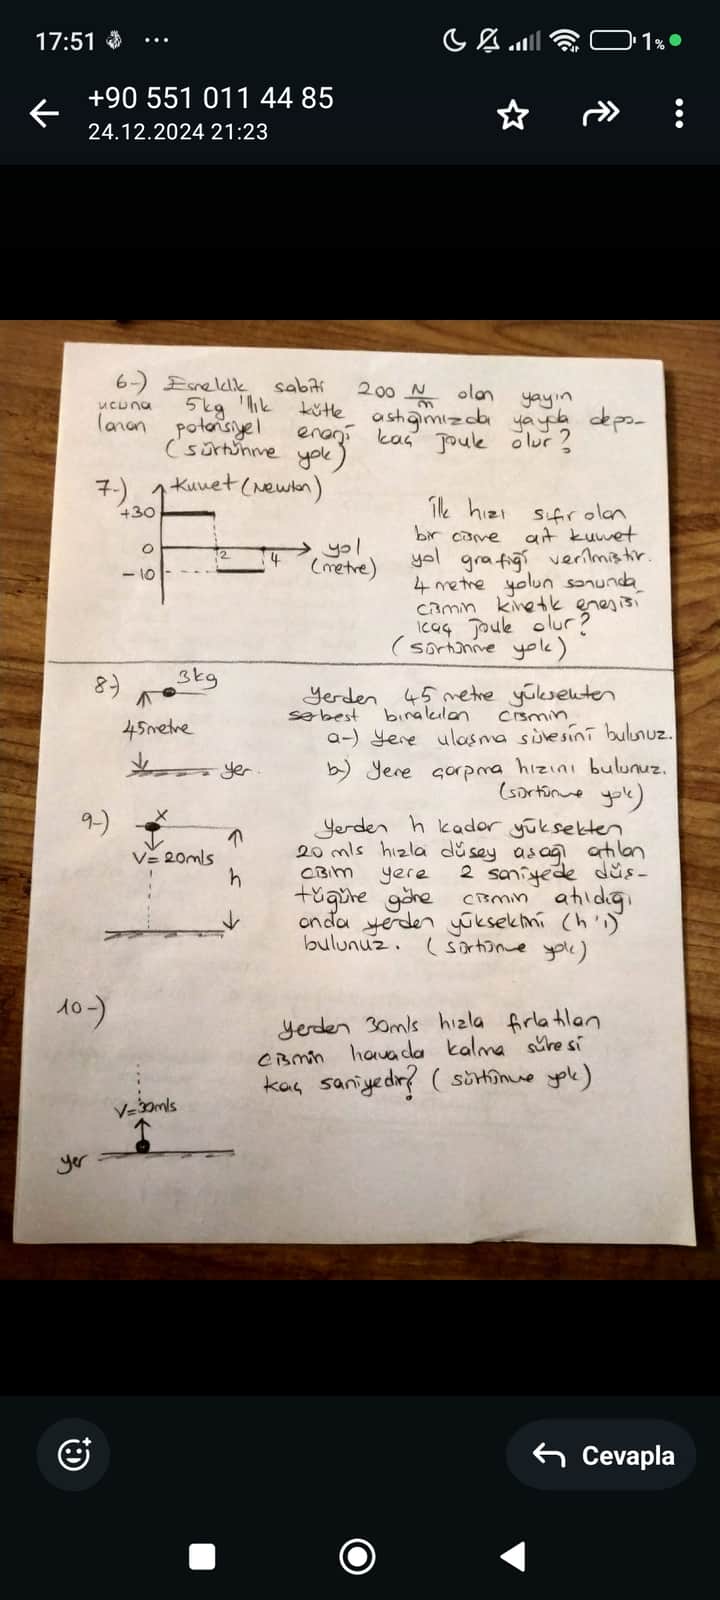 17:51 ...
1%
+90 551 011 44 85
24.12.2024 21:23
6-) Esneklik sabiti 200 N/m olan yayın
ucuna 5kg'lık kütle astığımızda yayda depo-
lanan potansiyel enerji kaç joule olur?
(sürtünme yok)
7-) Kuvvet (Newton)
+30
0
2
4
yol
(metre)
-10
İlk hızı sıfır olan
bir cisme ait kuvvet
yol grafiği verilmiştir.
4 metre yolun sonunda
cismin kinetik enerjisi
kaç joule olur?
(sürtünme yok)
8-) 3kg
45metre
yer.
Yerden 45 metre yüksekten
serbest bırakılan cismin
a-) Yere ulaşma süresini bulunuz.
b-) Yere çarpma hızını bulunuz.
(sürtünme yok)
9-) x
V=20m/s
h
Yerden h kadar yüksekten
20 m/s hızla düşey aşağı atılan
cisim yere 2 saniyede düş-
tüğüne göre cismin atıldığı
anda yerden yüksekliğini (h'ı)
bulunuz. (sürtünme yok)
10-)
V=30m/s
yer
Yerden 30m/s hızla fırlatılan
cismin havada kalma süresi
kaç saniyedir? (sürtünme yok)
Cevapla